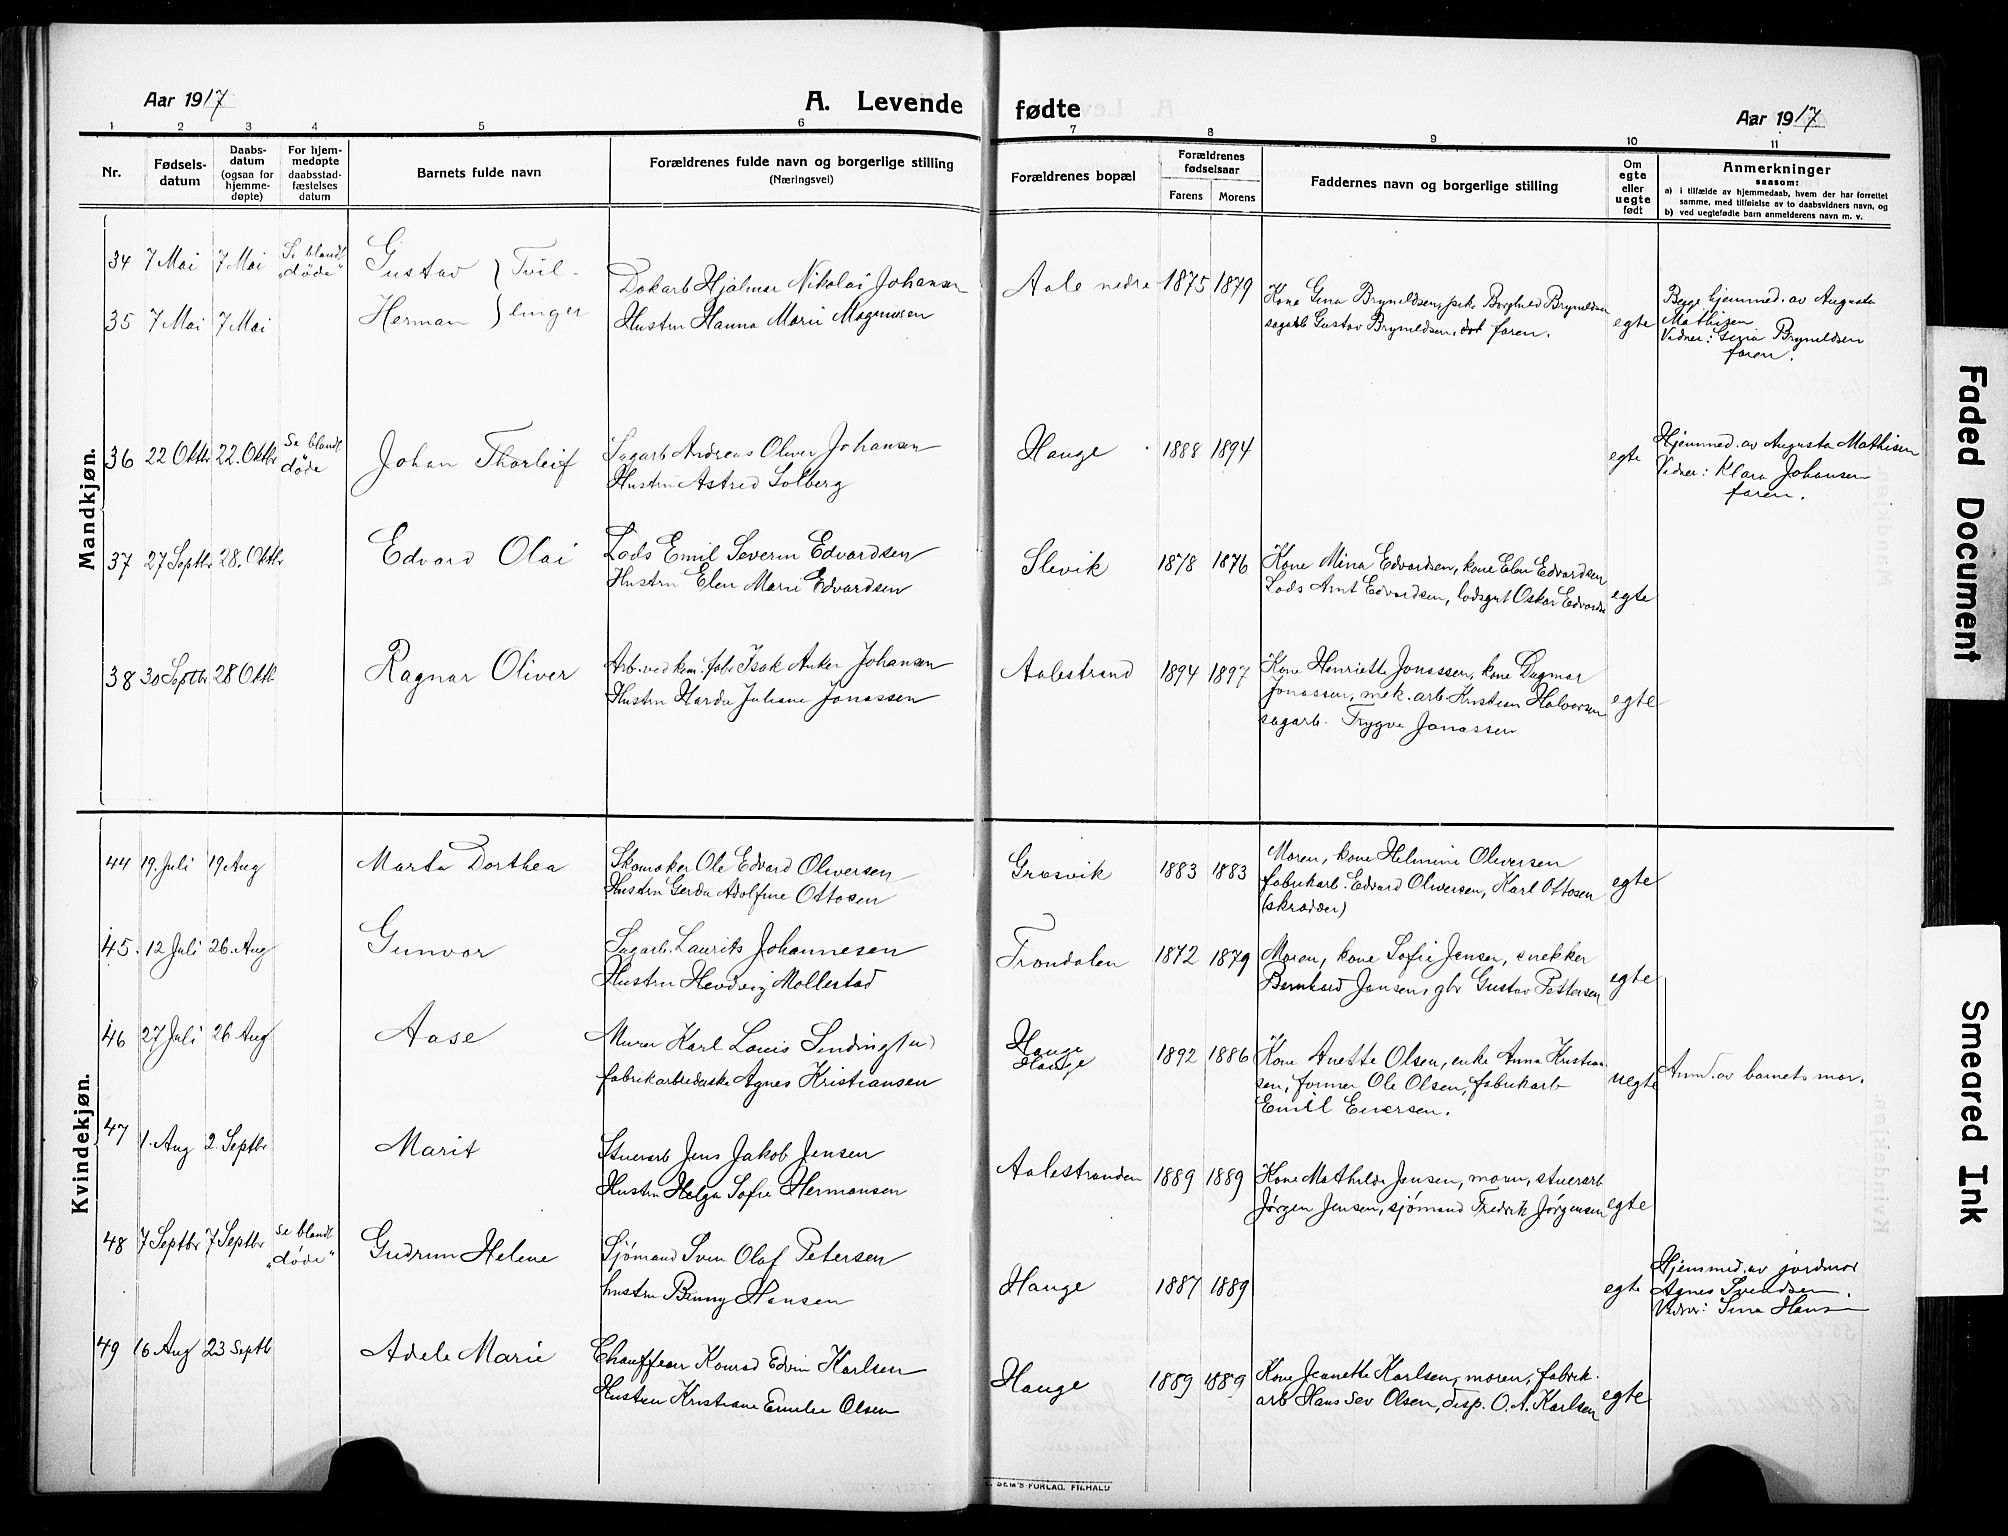 Aar 1917
A. Levende fødte
Aar 1917
1 2 3 4 5 6 7 8 9 10 11
Nr.
Fødsels-
datum
Daabs-
datum
(ogsaa for
hjemme-
døpte)
For hjem-
medøpte
daabsstad-
fæstelses
datum
Barnets fulde navn
Forældrenes fulde navn og borgerlige stilling
(Næringsvei)
Forældrenes bopæl
Forældrenes
fødselsaar
Farens Morens
Faddernes navn og borgerlige stilling
Om
egte
eller
uegte
født
Anmerkninger
saasom:
a) i tilfælde av hjemmedaab, hvem der har forrettet
samme, med tilføielse av to daabsvidners navn, og
b) ved uegtefødte barn anmelderens navn m. v.
Mandkjøn.
34 7 Mai 7 Mai Se blandt
"døde"
Gustav } Tvil-
35 7 Mai 7 Mai Herman } linger
Dokarb Hjalmar Nikolai Johansen
Hustru Hanna Marie Magnussen
Aale nedre 1875 1879
Kone Gina Bryneldsen, pike Borghild Bryneldsen
sagarb Gustav Bryneldsen, faren.
egte
Begge hjemmed. av Augusta
Mathisen
Vidner: Gina Bryneldsen
faren.
36 22 Oktbr 22. Oktbr Se blandt
døde
Johan Thorleif
Sagarb Andreas Oliver Johansen
Hustru Astrid Solberg
Hauge 1888 1894
egte
Hjemmed. av Augusta Mathisen
Vidner: Klara Johansen
faren.
37 27 Septbr 28. Oktbr
Edvard Olai
Lods Emil Severin Edvardsen
Hustru Elen Marie Edvardsen
Slevik 1878 1876
Kone Mina Edvardsen, kone Elen Edvardsen
Lods Arnt Edvardsen, lodsgut Oskar Edvards
egte
38 30 Septbr 28 Oktb
Ragnar Oliver
Arb. ved kem. fabr Isak Anker Johansen
Hustru Harda Juliane Jonassen
Aalestrand 1894 1897
Kone Henriette Jonassen, kone Dagmar
Jonassen, mek. arb. Kristian Halvorsen
sagarb. Trygve Jonassen
egte
Kvindekjøn.
44 19. Juli 19 Aug
Marta Dorthea
Skomaker Ole Edvard Oliversen
Hustru Gerda Adolfine Ottosen
Græsvik 1883 1883
Moren, kone Helmine Oliversen
fabrikarb. Edvard Oliversen, Karl Ottosen
(skrædder)
egte
45. 12 Juli 26. Aug
Gunvor
Sagarb. Laurits Johannesen
Hustru Hedvig Mollestad
Trondalen 1872 1879
Moren, kone Sofie Jensen, snekker
Bernhard Jansen, gbr Gustav Pettersen
egte
46 27 Juli 26 Aug
Aase
Murer Karl Louis
fabrikarbeiderske Agnes Kristiansen
Hauge
Hauge 1892 1886
Kone Anette Olsen, enke Anna Kristian
sen, former Ole Olsen, fabrikarb
Emil Enersen.
uegte
Anm. av barnets mor.
47 1. Aug 2. Septbr
Marit
Stuerarb Jens Jakob Jensen
Hustru Helga Sofie Hermansen
Aalestranden 1889 1889
Kone Mathilde Jensen, moren, stuerarb
Jørgen Jensen, sjømand Fredrik Jørgensen
egte
48 7 Septbr 7 Septbr se blandt
"døde"
Gudrun Helene
Sjømand Sven Olaf Petersen
hustru Benny Hansen
Hauge 1887 1889
egte
Hjemmed. av jordmor
Agnes Svendsen.
Vidner: Hans
49 16 Aug 23 Septb
Adele Marie
Chauffeur Konrad Edvin Karlsen
Hustru Kristiane Emilie Olsen
Hauge 1889 1889
Kone Jeanette Karlsen, moren, fabrik.
arb Hans Sev Olsen, desp. O. A. Karlsen
egte
SEM'S FORLAG, FR.HALD
Faded Document
Smeared Ink